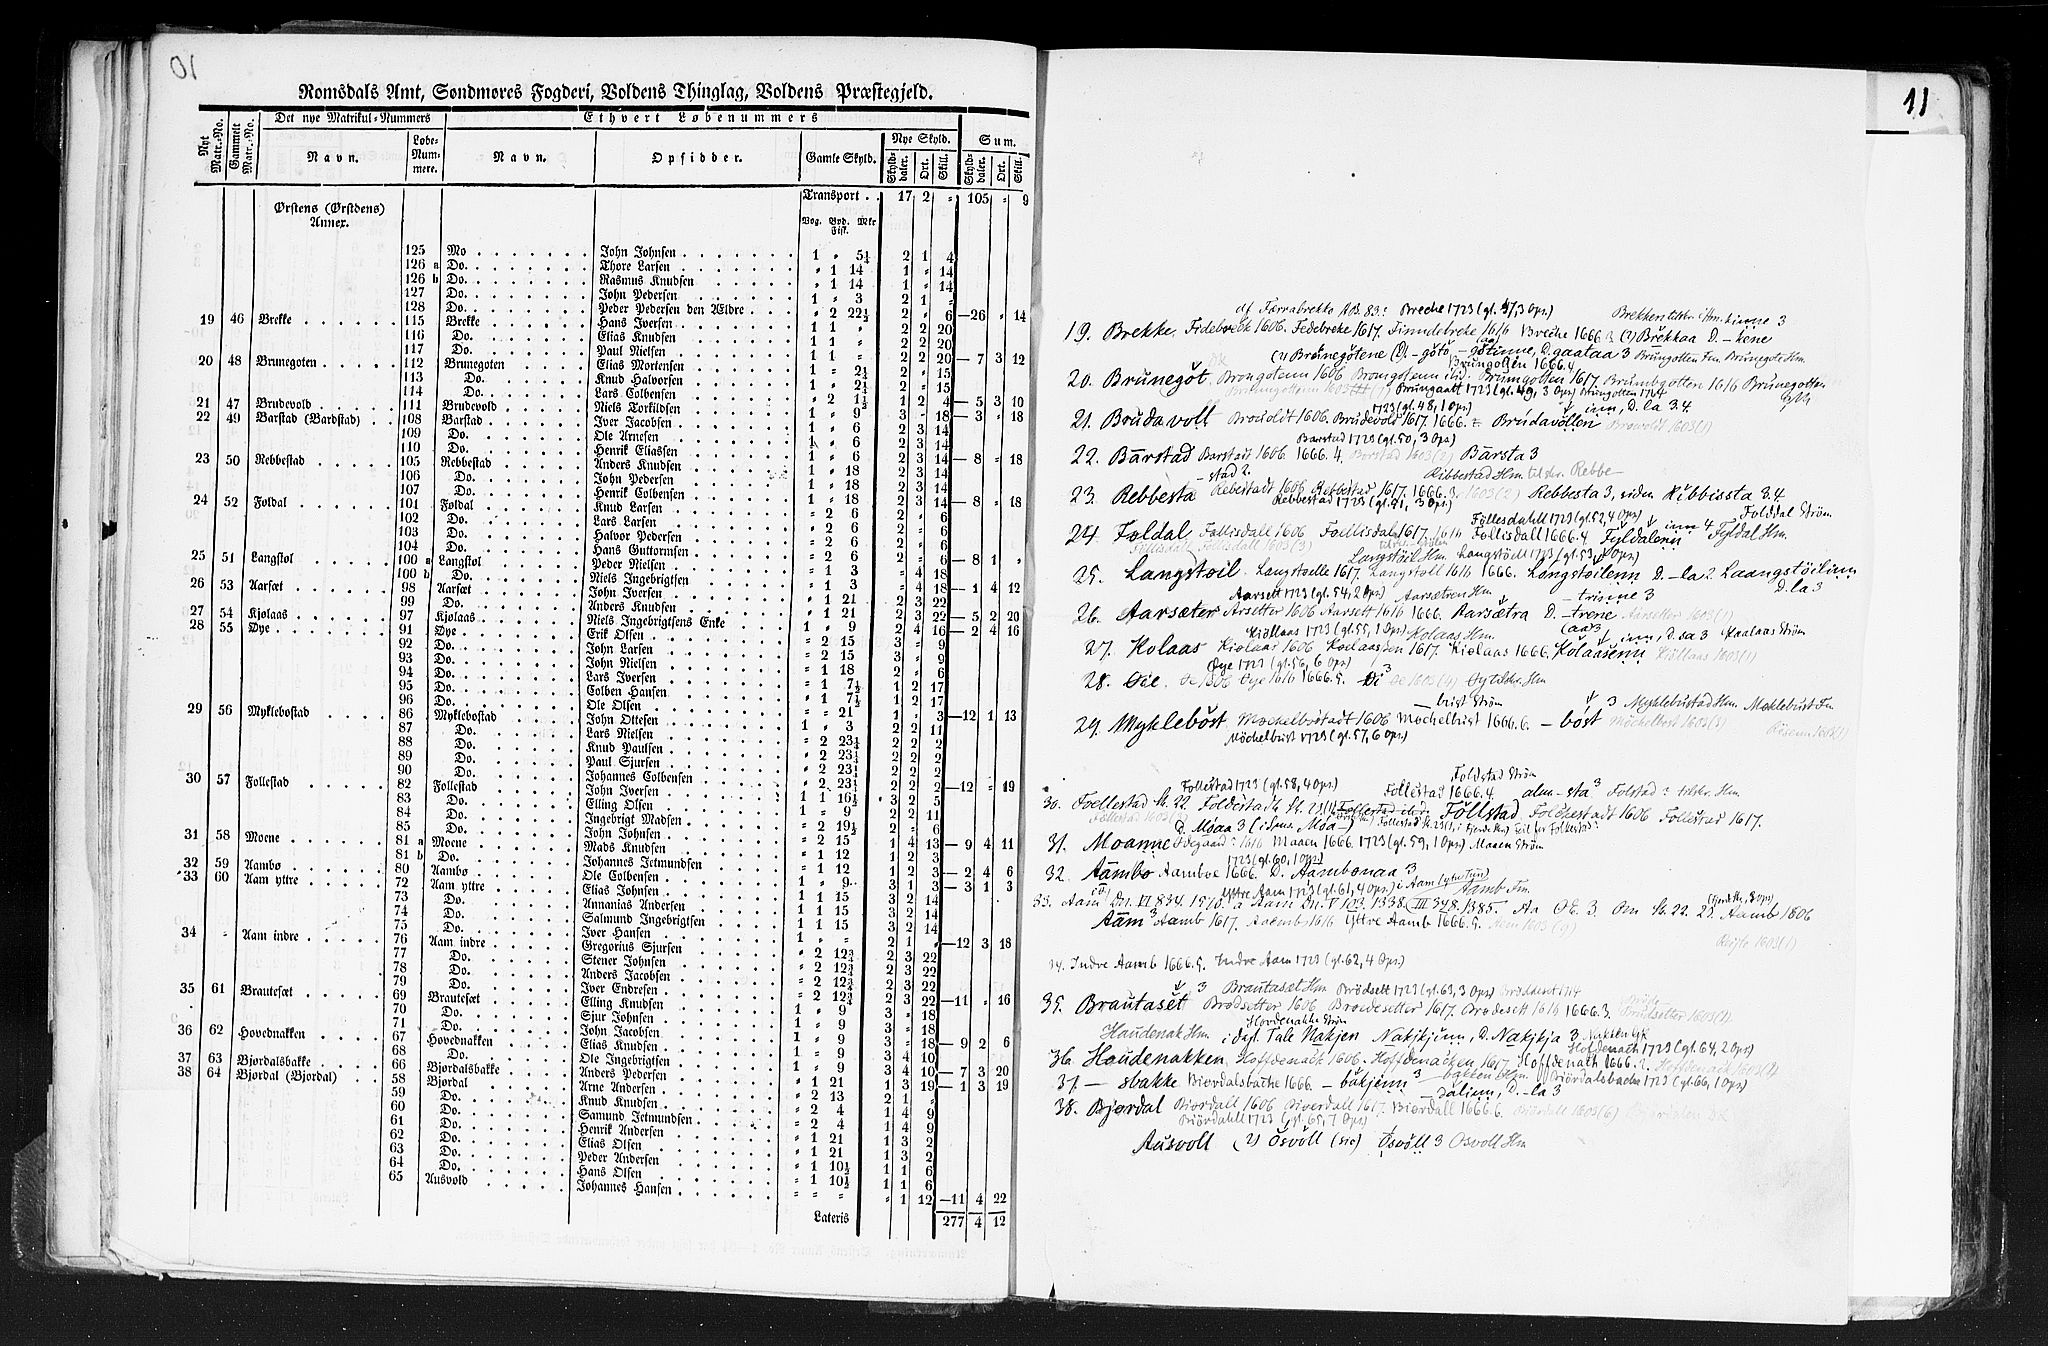 10
Romsdals Amt, Søndmøres Fogderi, Voldens Thinglag, Voldens Præstegjeld.
Nyt Matr.-No. Gammelt Matr.-No. Det nye Matrikul-Nummers Ethvert Løbenummers
Navn. Løbe-Nummere. Navn. Opsidder. Gamle Skyld. Nye Skyld. Sum.
Skylddaler. Ort. Skill. Skylddaler. Ort. Skill.
Transport . . 17 2 " 105 " 9
Ørstens (Ørstdens) Annex. Vog. Bpd. Mkr Fisk.
125 Mo John Johnsen 1 " 5¼ 2 1 4
126 a Do. Thore Larsen " 1 14 1 " 14
126 b Do. Rasmus Knudsen " 1 14 1 " 14
127 Do. John Pedersen 1 " 3 2 1 "
128 Do. Peder Pedersen den Ældre " 2 22½ 2 " 6 —26 " 14
19 46 Brekke 115 Brekke Hans Iversen 1 1 " 2 2 20
116 Do. Elias Knudsen 1 1 " 2 2 20
117 Do. Paul Nielsen 1 1 " 2 2 20 — 7 3 12
20 48 Brunegoten 112 Brunegoten Elias Mortensen 1 " 2¼ 2 " 15
113 Do. Knud Halvorsen 1 " 2¼ 2 " 15
114 Do. Lars Colbensen " 2 1½ 1 2 4 — 5 3 10
21 47 Brudevold 111 Brudevold Niels Torkildsen 1 " 9 3 " 18 — 3 " 18
22 49 Barstad (Bardstad) 108 Barstad Iver Jacobsen 1 " 6 2 3 14
109 Do. Ole Arnesen 1 " 6 2 3 14
110 Do. Henrik Eliassen 1 " 6 2 3 14 — 8 " 18
23 50 Rebbestad 105 Rebbestad Anders Knudsen 1 " 18 2 3 14
106 Do. John Pedersen 1 " 18 2 3 14
107 Do. Henrik Colbensen 1 " 18 2 3 14 — 8 " 18
24 52 Foldal 101 Foldal Knud Larsen " 2 6 2 " 6
102 Do. Lars Larsen " 2 6 2 " 6
103 Do. Halvor Pedersen " 2 6 2 " 6
104 Do. Hans Guttormsen " 2 6 2 " 6 — 8 1 "
25 51 Langstol 100 a Langstol Peder Nielsen " 1 3 " 4 18
100 b Do. Niels Ingebrigtsen " 1 3 " 4 18 — 1 4 12
26 53 Aarsæt 98 Aarsæt John Iversen " 1 21 2 3 22
99 Do. Anders Knudsen " 1 21 2 3 22 — 5 2 20
27 54 Kjølaas 97 Kjølaas Niels Ingebrigtsens Enke 1 " 9 2 4 16 — 2 4 16
28 55 Øye 91 Øye Erik Olsen " 2 15 3 " 9
92 Do. John Larsen " 2 15 3 " 9
93 Do. John Nielsen " 1 18 2 " 6
94 Do. Lars Iversen " 1 7½ 1 2 17
95 Do. Colben Hansen " 1 7½ 1 2 17
96 Do. Ole Olsen " " 21 1 " 3 —12 1 13
29 56 Myklebostad 86 Myklebostad John Ottesen 1 " 3 2 2 11
87 Do. Lars Nielsen " 2 23¼ 2 2 2
88 Do. Knud Paulsen " 2 23¼ 2 2 2
89 Do. Paul Sjursen " 2 23¼ 2 2 2
90 Do. Johannes Colbensen " 2 23¼ 2 2 2 —12 " 19
30 57 Follestad 82 Follestad John Iversen 1 1 16½ 3 2 5
83 Do. Elling Olsen 1 " 9 2 2 11
84 Do. Ingebrigt Madsen " 2 19½ 2 " 6
85 Do. John Johnsen " 2 15 1 4 13 — 9 4 11
31 58 Moene 81 a Moene Mads Knudsen " 1 12 1 2 3
81 b Do. Johannes Jetmundsen " 1 12 1 2 3 — 2 4 6
32 59 Aambø 80 Aambø Ole Colbensen 1 " 9 3 1 3 — 3 1 3
33 60 Aam yttre 72 Aam yttre Elias Johnsen 1 1 15 3 2 14
73 Do. Annanias Andersen 1 1 15 3 2 14
74 Do. Salmund Ingebrigtsen 1 1 15 3 2 14
75 Do. Iver Hansen 1 " " 2 1 " —12 3 18
34 - Aam indre 76 Aam indre Gregorius Sjursen " 2 12¾ 2 3 22
77 Do. Stener Johnsen " 2 12¾ 2 3 22
78 Do. Anders Jacobsen " 2 12¾ 2 3 22
79 Do. Iver Endresen " 2 12¾ 2 3 22 —11 " 16
35 61 Brautesæt 69 Brautesæt Elling Knudsen 1 " 9 3 " 18
70 Do. Sjur Johnsen 1 " 9 3 " 18
71 Do. John Jacobsen 1 " 9 3 " 18 — 9 2 6
36 62 Hovednakken 67 Hovednakken Elias Knudsen 1 " 9 3 4 10
68 Do. Ole Ingebrigtsen 1 " 9 3 4 10 — 7 3 20
37 63 Bjørdalsbakke 66 Bjørdalsbakke Anders Pedersen " 1 21 1 3 19 — 1 3 19
38 64 Bjørdal (Bjordal) 58 Bjørdal Arne Andersen " 2 13 2 1 "
59 Do. Knud Knudsen " 2 4 1 4 9
60 Do. Samund Jetmundsen " 2 4 1 4 9
61 Do. Henrik Andersen " 1 21 1 3 2
62 Do. Elias Olsen " 1 21 1 3 2
63 Do. Peder Andersen " 1 10½ 1 1 6
64 Do. Hans Olsen " 1 10½ 1 1 6
65 Ausvold Johannes Hansen " " " " 1 12 —11 4 22
Lateris 277 4 12
11
Breche 1723 (gl. 47, 3 Ops)
19. Brekke. Fidebreck 1606. Fedebreke 1617. Finndebreke 1616 Breche 1666.3 (2) Brekkaa D. -kene
(2) Brunegotene
Brungotten 1666.4
20. Brunegot. Brongotenn 1606 Brungotten 1617. Brumbgotten 1616 Brunegotten
Brungaatt 1723 (gl. 49, 3 Ops)
1723 (gl. 48, 1 Ops) inn, D. la 3.4.
21. Brudavoll Brouoldt 1606. Brudevold 1617. 1666. Brudavollen
Barstad 1723 (gl. 50, 3 Ops)
22. Barstad Barstadt 1606 1666.4. Barsta 3
-stad 2. Ribbestad Hm tilskr. Rebbe-
23. Rebbesta Rebestadt 1606 Rebbestad 1617. 1666.3. Rebbesta 3, siden Ribbissta 3.4
Rebbestad 1723 (gl. 51, 3 Ops) Folddal Strøm
Follesdahll 1723 (gl. 52, 4 Ops) inn 4
24. Foldal. Follisdall 1606 Follisdal 1617. 1616 Follisdall 1666.4 Fyldalenn Fyldal Hm.
Langstøil Hm. Langstøell 1723 (gl. 53, Ops)
25. Langstøil. Langstoelle 1617. Langstøll 1616 1666. Langstøilenn D. -la 2. Laangstøilinn D. la 3
Aarsett 1723 (gl. 54, 2 Ops) Aarsætren Hm -trinne 3
26. Aarsæter Arsetter 1606 Aarsett 1616 1666. Aarsætra D. -trene
Kiøllaas 1723 (gl. 55, 1 Ops) Kolaas Hm. inn, D. sa 3
27. Kolaas Kiølaas 1606 Kiølaas 1666. Kolaasenn Kiøllaas 1603 (1)
Øye 1723 (gl. 56, 6 Ops)
28. Øie. Øye 1616 1666.5.
-bust Strøm 3 Myklebustad Hm. Meklebust Fm
29. Myklebost Mochelbostadt 1606 Mochelbust 1666.6. -bost
Möchelbust 1723 (gl. 57, 6 Ops)
Foldstad Strøm
Follestad 1723 (gl. 58, 4 Ops) Follestad 1666.4 alm -sta 3 Folstad tilskr. Hm
30. Foellestad St. 22. Follstad Foldestadt 1606 Follestad 1617.
D. Moaa 3
31. Moanne Maaen 1666. 1723 (gl. 59, 1 Ops) Maaen Strøm
1723 (gl. 60, 1 Ops)
32. Aambo Aamboe 1666. D. Aambonaa 3
Yttre Aam 1723 (gl. 61, 4 Ops) Aamb Fm.
33. Aam Dn. VI 834. 1510. a Aam Dn. V 103. 1338. III 348. 1385. Aa OE. 3. Om St. 22. 23. Aamb 1606
Aam 3 Aamb 1617. Aaemb 1616 Yttre Aamb 1666.5.
34. Indre Aamb 1666.5. Indre Aam 1723 (gl. 62, 4 Ops)
Brautaset Hm Brødsett 1723 (gl. 63, 3 Ops)
35. Brautaset Brodsetter 1606. Broedesetter 1617. Brodesett 1616 1666.3.
Hovdenakke Strøm
Haudenak Hm. i dagl. Tale Nakjen Nakjkjinn, D. Nakjkja 3
Hoffdenach 1723 (gl. 64, 2 Ops)
36. Haudenakken Hoffdenach 1606. Hoffdenacken 1617 Hoffdenach 1666.2.
37. — sbakke Biørdalsbache 1666. -bakjenn 3 -bakken Hm. Biørdalsbachen 1723 (gl. 66, 1 Ops)
-dalinn, D. -la 3
38. Bjørdal Biørdall 1606 Biverdall 1617. Biørdall 1666.6.
Biördahll 1723 (gl. 65, 7 Ops)
Ausvoll (2) Osvoll (sic) Osvoll 3 Osvoll Hm